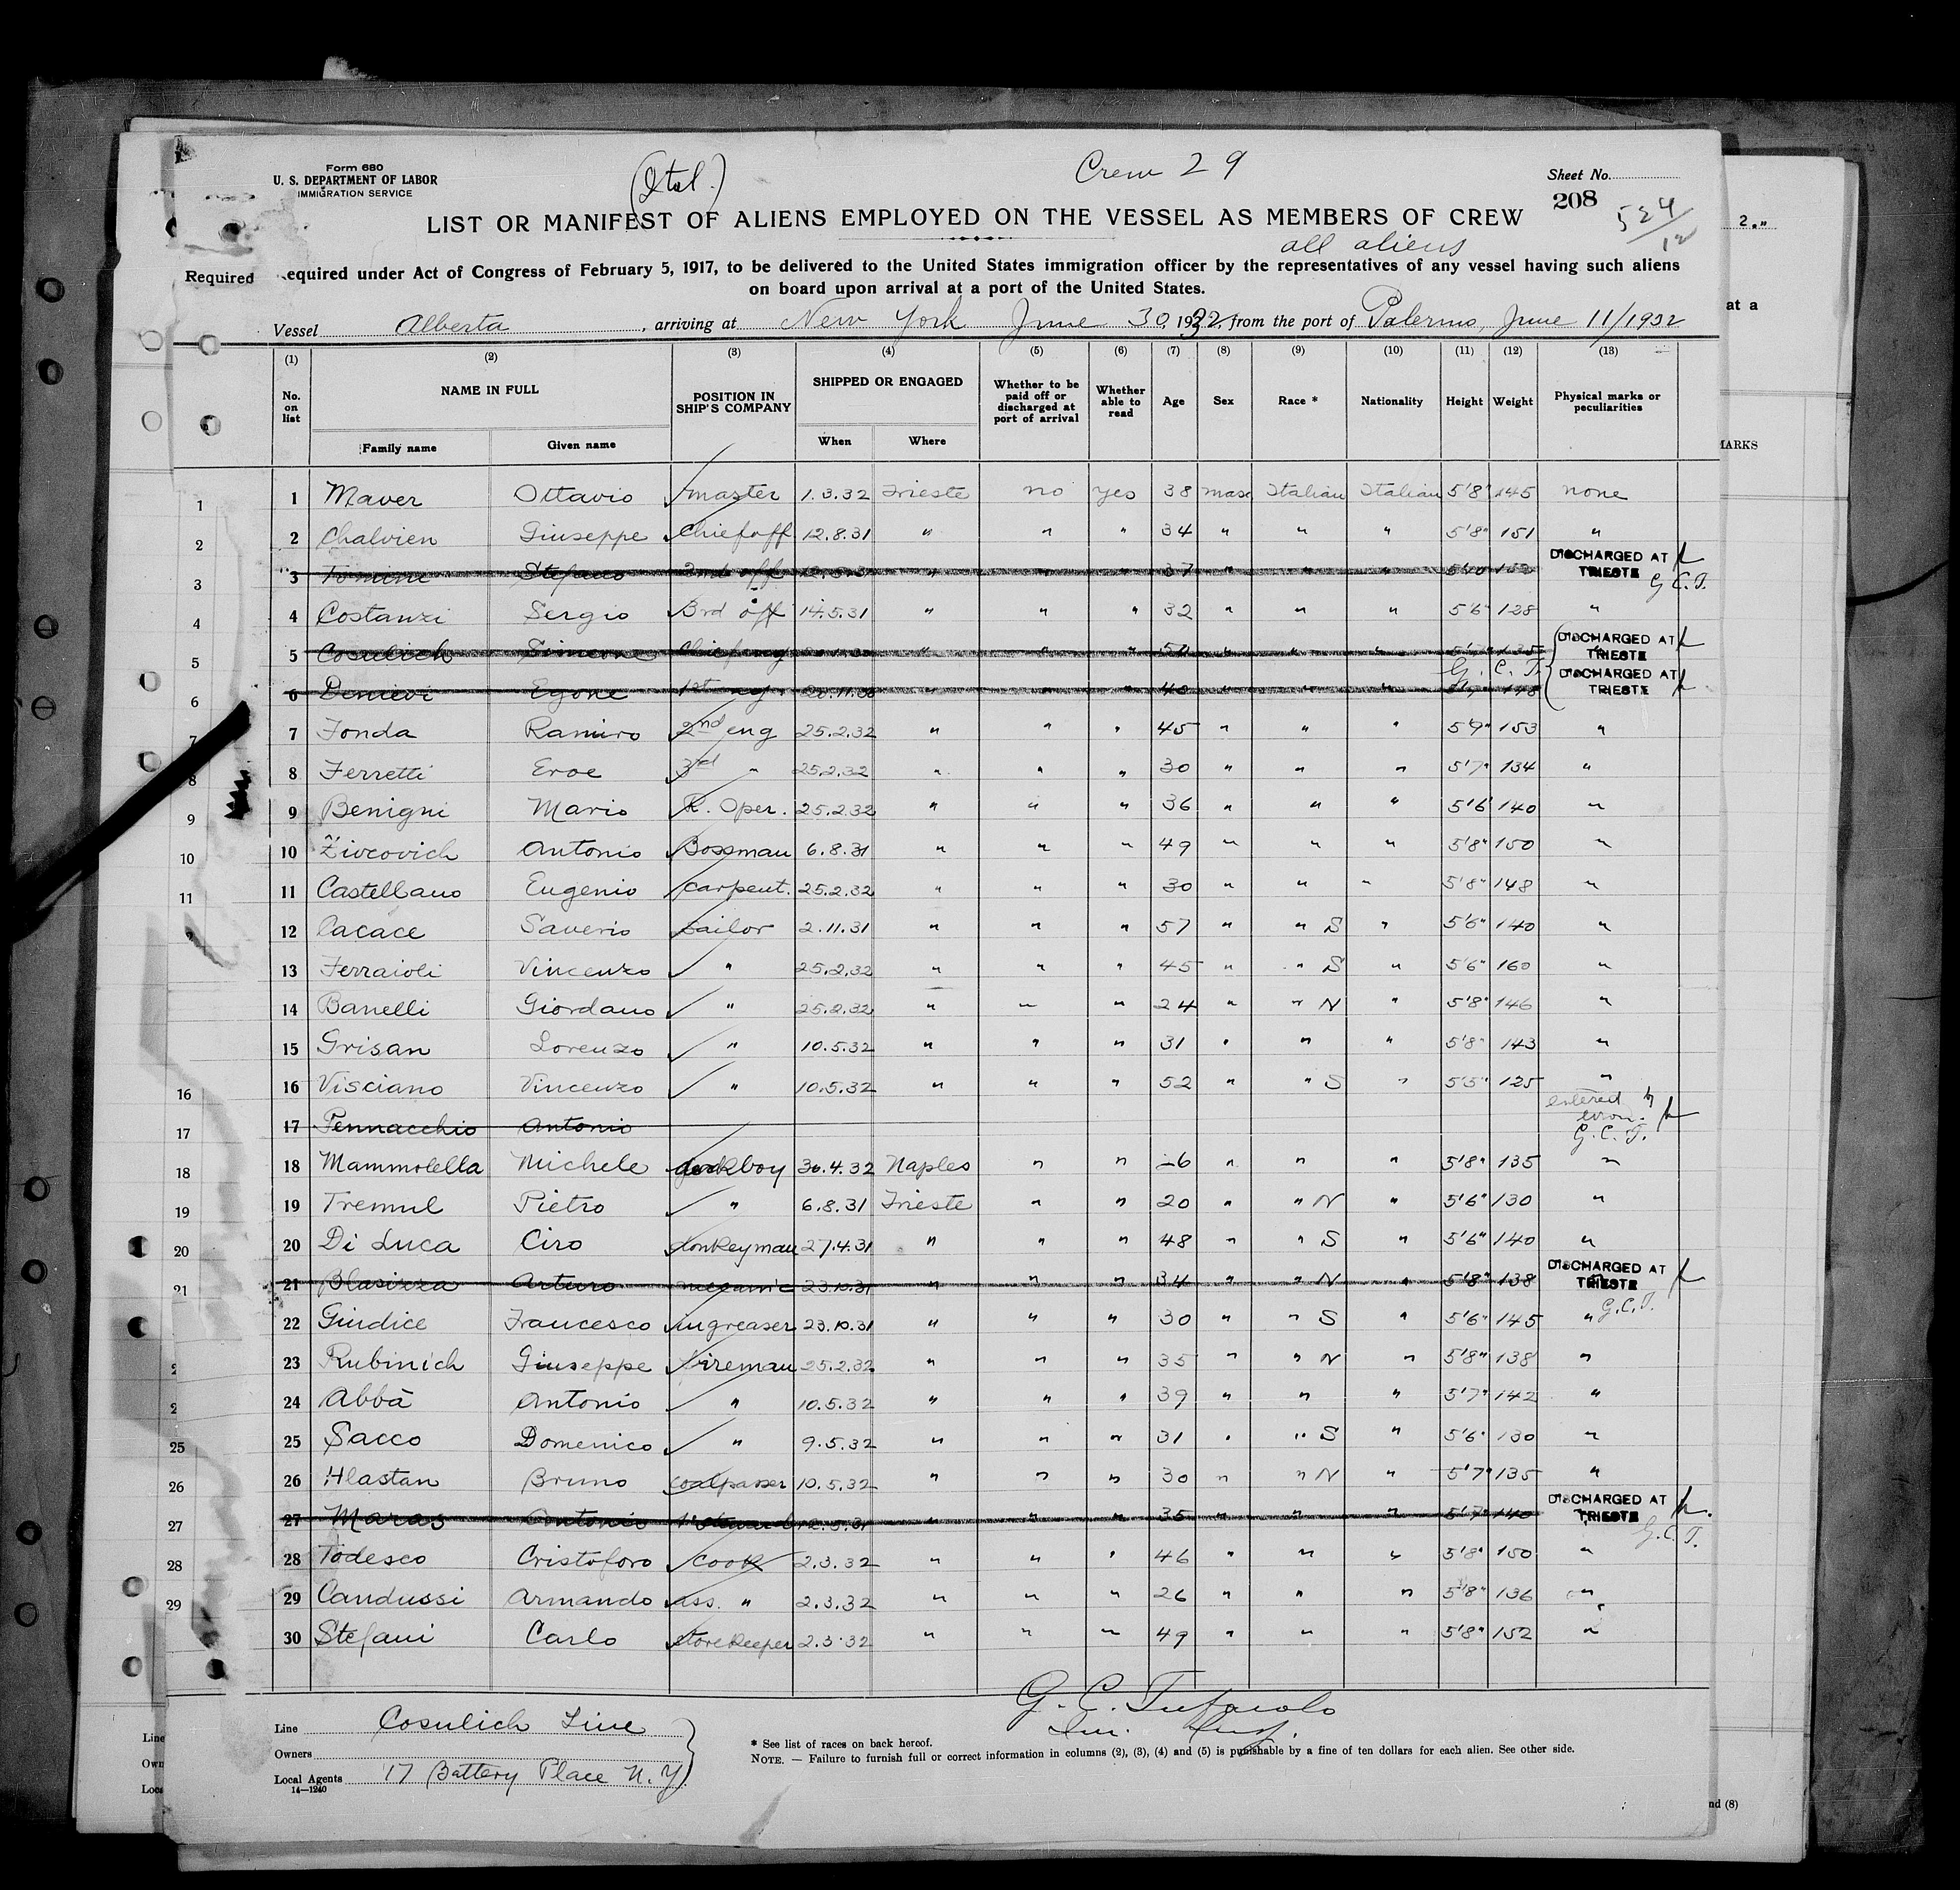 Form 680
U. S. DEPARTMENT OF LABOR
IMMIGRATION SERVICE
(Ital.)
Crew 29
Sheet No.
208
524/12
2."
LIST OR MANIFEST OF ALIENS EMPLOYED ON THE VESSEL AS MEMBERS OF CREW
all aliens
Required equired under Act of Congress of February 5, 1917, to be delivered to the United States immigration officer by the representatives of any vessel having such aliens
on board upon arrival at a port of the United States.
at a
Vessel Alberta, arriving at New York June 30, 1932, from the port of Palermo, June 11/1932
(1) (2) (3) (4) (5) (6) (7) (8) (9) (10) (11) (12) (13)
No. on list NAME IN FULL Family name Given name POSITION IN SHIP'S COMPANY SHIPPED OR ENGAGED When Where Whether to be paid off or discharged at port of arrival Whether able to read Age Sex Race * Nationality Height Weight Physical marks or peculiarities
MARKS
1 Maver Ottavio master 1.3.32 Trieste no yes 38 masc Italian Italian 5'8" 145 none
2 Chalvien Giuseppe Chief off 12.8.31 " " " 34 " " " 5'8" 151 "
3 Stefano 2nd off " " " 37 " " " 5'10 152 DISCHARGED AT TRIESTE G.C.T.
4 Costanzi Sergio 3rd off 14.5.31 " " " 32 " " " 5'6" 128 "
5 Cosulich Simeone Chief eng " " " 50 " " " 135 DISCHARGED AT TRIESTE
G. C. T.
6 Denievi Egone 1st eng. 20.11.30 " " " 40 " " " 148 DISCHARGED AT TRIESTE
7 Fonda Ramiro 2nd eng 25.2.32 " " " 45 " " " 5'9" 153 "
8 Ferretti Eroe 3rd " 25.2.32 " " " 30 " " " 5'7" 134 "
9 Benigni Mario R. Oper. 25.2.32 " " " 36 " " " 5'6 140 "
10 Zivcovich Antonio Bossman 6.8.31 " " " 49 " " " 5'8" 150 "
11 Castellano Eugenio carpent. 25.2.32 " " " 30 " " " 5'8" 148 "
12 Cacace Saverio sailor 2.11.31 " " " 57 " " S " 5'6" 140 "
13 Ferraioli Vincenzo " 25.2.32 " " " 45 " " S " 5'6" 160 "
14 Banelli Giordano " 25.2.32 " " " 24 " " N " 5'8" 146 "
15 Grisan Lorenzo " 10.5.32 " " " 31 " " " 5'8" 143 "
16 Visciano Vincenzo " 10.5.32 " " " 52 " " S " 5'5" 125 "
17 Pennacchio Antonio entered by error. G.C.T.
18 Mammolella Michele deckboy 30.4.32 Naples " " 26 " " " 5'8" 135 "
19 Tremul Pietro " 6.8.31 Trieste " " 20 " " N " 5'6" 130 "
20 Di Luca Ciro donkeyman 27.4.31 " " " 48 " " S " 5'6" 140 "
21 Blasizza Arturo meccanic 23.10.31 " " " 34 " " N " 5'8" 138 DISCHARGED AT TRIESTE G.C.T.
22 Giudice Francesco ingreaser 23.10.31 " " " 30 " " S " 5'6" 145 "
23 Rubinich Giuseppe fireman 25.2.32 " " " 35 " " N " 5'8" 138 "
24 Abbà Antonio " 10.5.32 " " " 39 " " " 5'7" 142 "
25 Sacco Domenico " 9.5.32 " " " 31 " " S " 5'6" 130 "
26 Hlastan Bruno coalpasser 10.5.32 " " " 30 " " N " 5'7" 135 "
27 Maras Antonio 12.5.31 " " " 35 " " " 5'7" 140 DISCHARGED AT TRIESTE G.C.T.
28 Todesco Cristoforo cook 2.3.32 " " " 46 " " " 5'8" 150 "
29 Candussi Armando ass. " 2.3.32 " " " 26 " " " 5'8" 136 "
30 Stefani Carlo storekeeper 2.3.32 " " " 49 " " " 5'8" 152 "
G. C. Tufarolo
Im. Insp.
Line Cosulich Line
Owners
Local Agents 17 Battery Place N.Y
14—1240
* See list of races on back hereof.
NOTE. — Failure to furnish full or correct information in columns (2), (3), (4) and (5) is punishable by a fine of ten dollars for each alien. See other side.
nd (8)